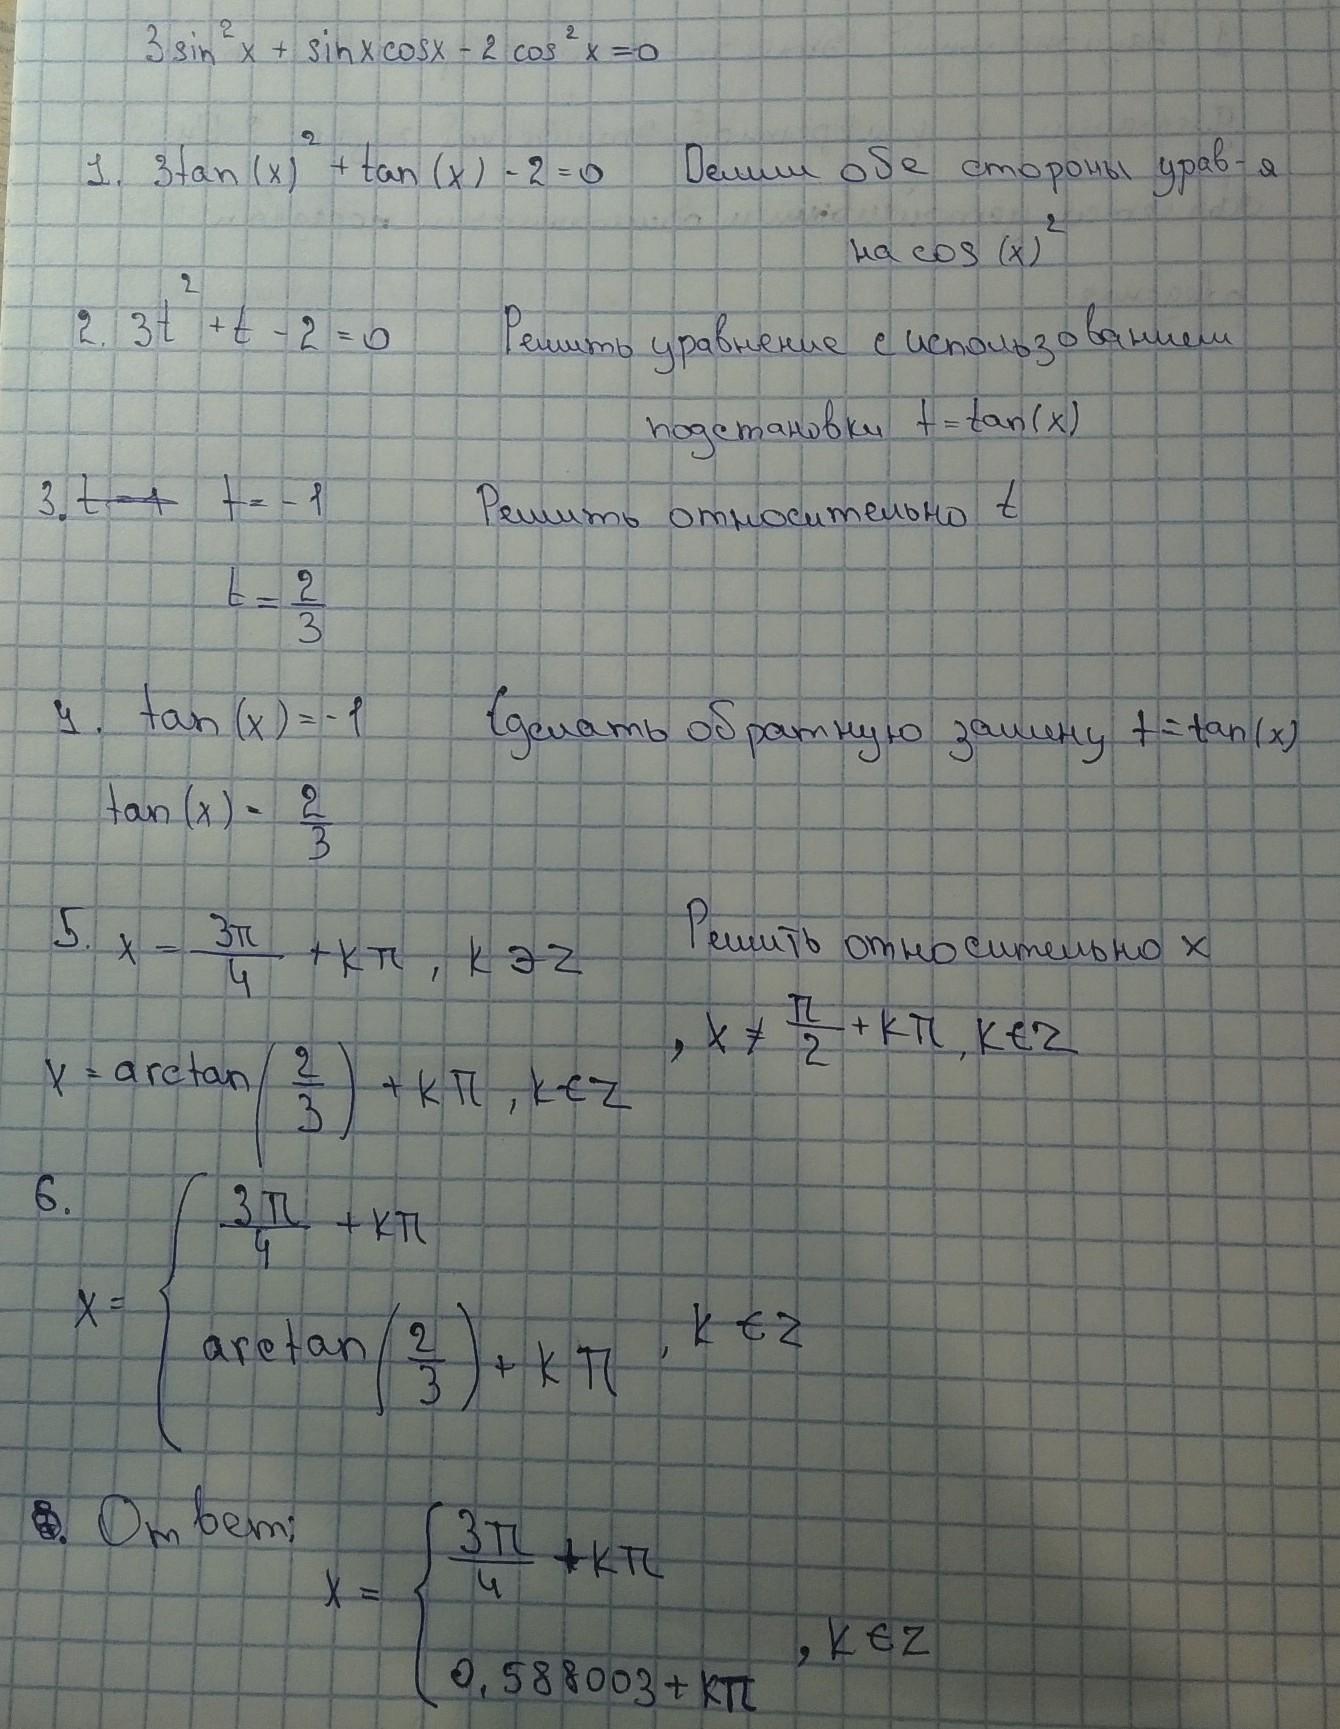 3 sin²x + sinx cosx - 2 cos²x = 0
1. 3tan(x)² + tan(x) - 2 = 0 Делим обе стороны урав-я
на cos(x)²
2. 3t² + t - 2 = 0 Решить уравнение с использованием
подстановки t = tan(x)
3. t = -1 Решить относительно t
t = 2/3
4. tan(x) = -1 Сделать обратную замену t = tan(x)
tan(x) - 2/3
5. x = 3π/4 + kπ, k ∋ Z Решить относительно x
, x ≠ π/2 + kπ, k ∈ Z
x = arctan(2/3) + kπ, k ∈ Z
6.
3π/4 + kπ
x = {
arctan(2/3) + kπ , k ∈ Z
8. Ответ:
3π/4 + kπ
x = {
, k ∈ Z
0,588003 + kπ